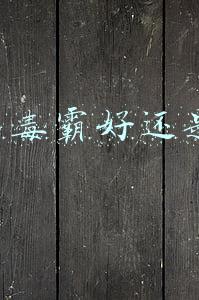 毒霸好还是